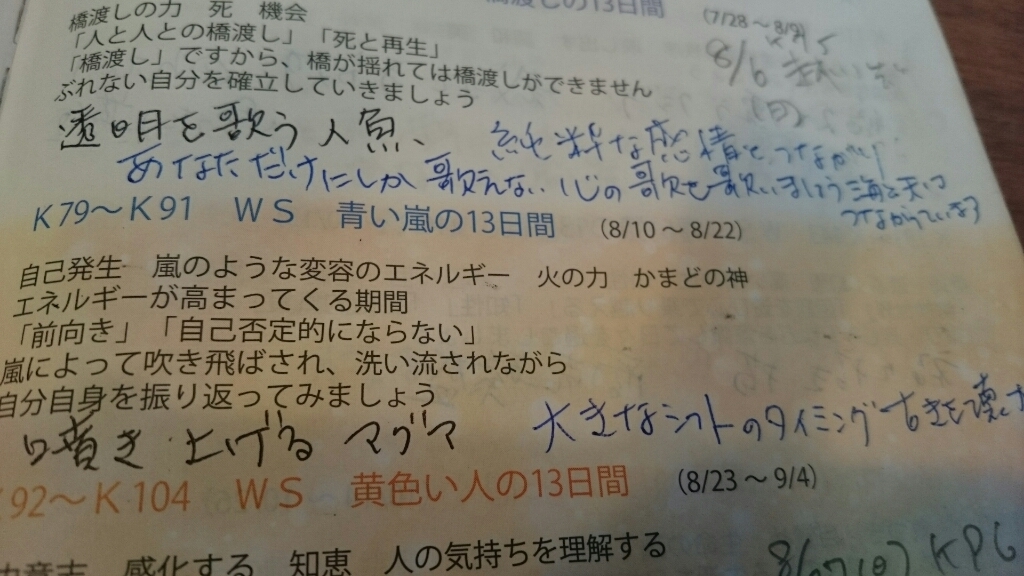 橋渡しの13日間 (7/28～8/9)
橋渡しの力 死 機会
「人と人との橋渡し」「死と再生」
「橋渡し」ですから、橋が揺れては橋渡しができません
ぶれない自分を確立していきましょう
8/6
(日)
透明を歌う人魚、 純粋な感情とつながり
あなただけにしか歌えない心の歌を歌いましょう 海と天は
つながっている
K79～K91 WS 青い嵐の13日間 (8/10～8/22)
自己発生 嵐のような変容のエネルギー 火の力 かまどの神
エネルギーが高まってくる期間
「前向き」「自己否定的にならない」
嵐によって吹き飛ばされ、洗い流されながら
自分自身を振り返ってみましょう
噴き上げるマグマ 大きなシフトのタイミング 古きを壊
92～K104 WS 黄色い人の13日間 (8/23～9/4)
感化する 知恵 人の気持ちを理解する
8/27(日) KPG